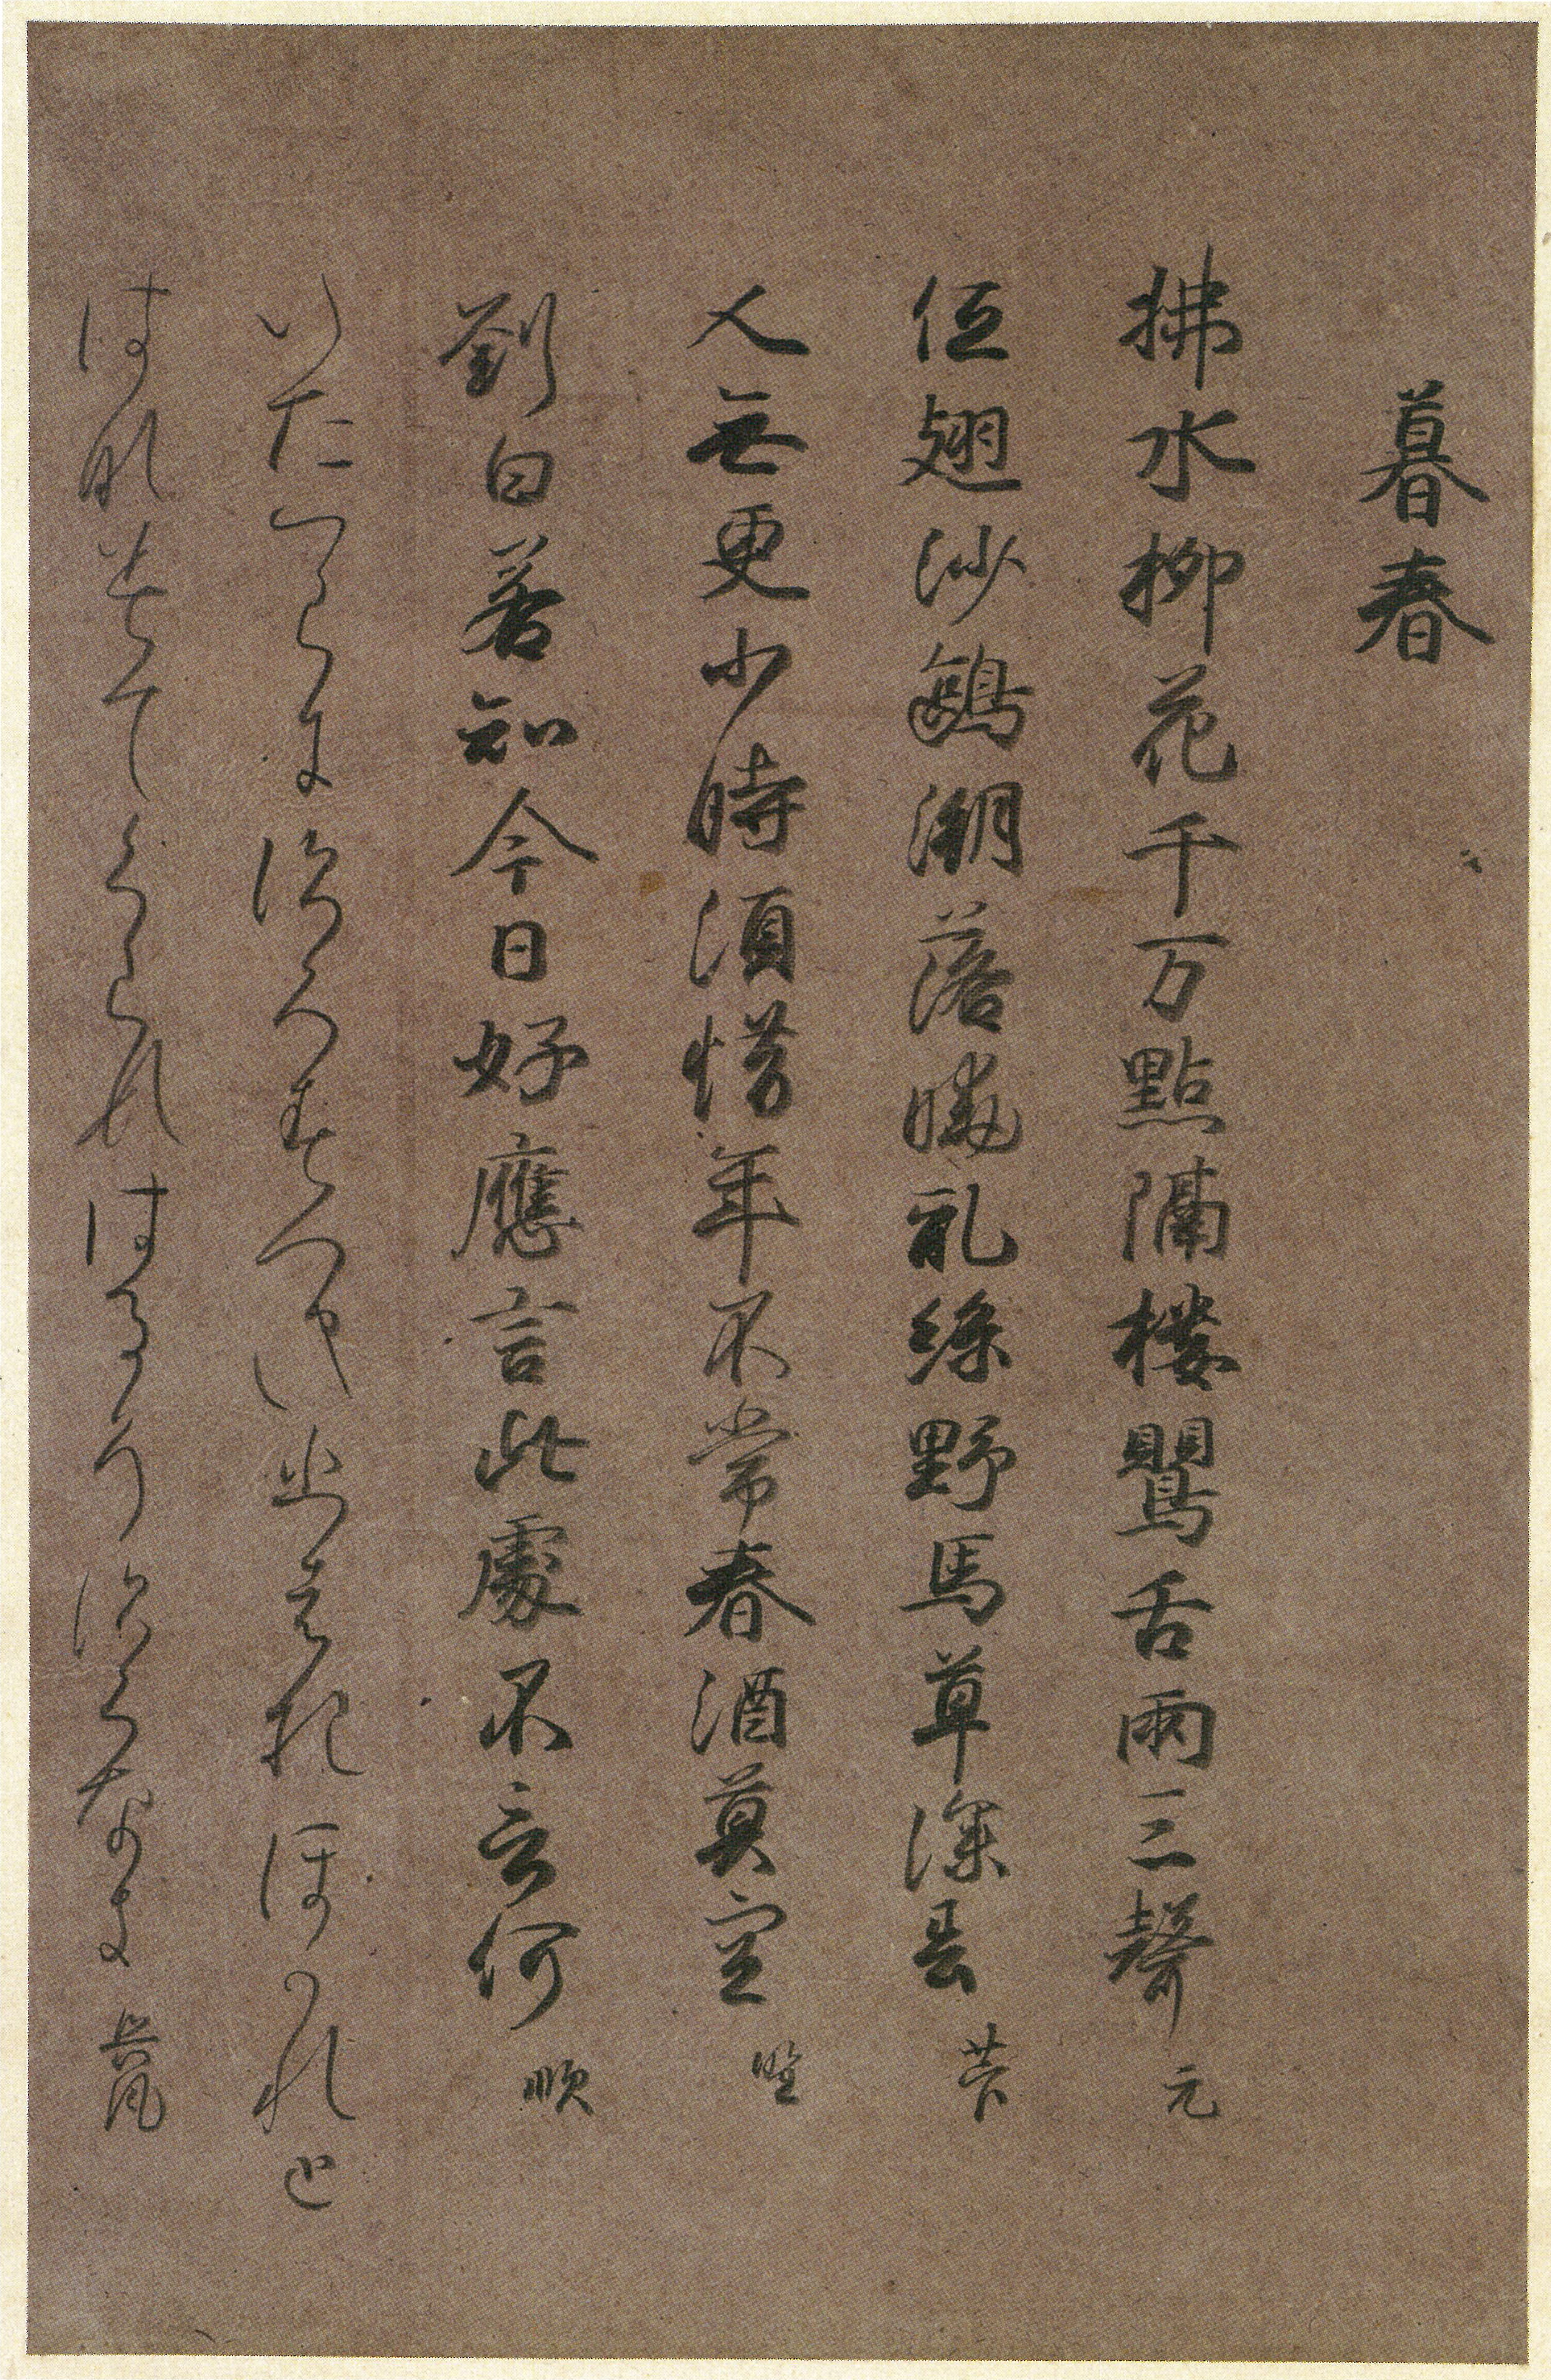 暮春
拂水柳花千万點隔樓鶯舌兩三聲 元
低翅沙鷗潮落曉乱絲野馬草深春 菅
人無更少時須惜年不常春酒莫空 野
劉白若知今日好應言此處不言何 順
いたつらにすくすつきひはおほかれと
はなみてくらすはるそすくなき 興風